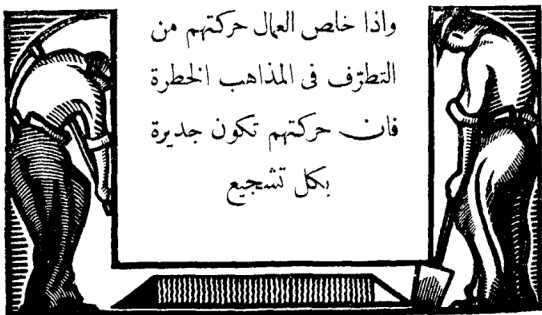 واذا خلص العمال حركتهم من
التطرّف فى المذاهب الخطرة
فان حركتهم تكون جديرة
بكل تشجيع